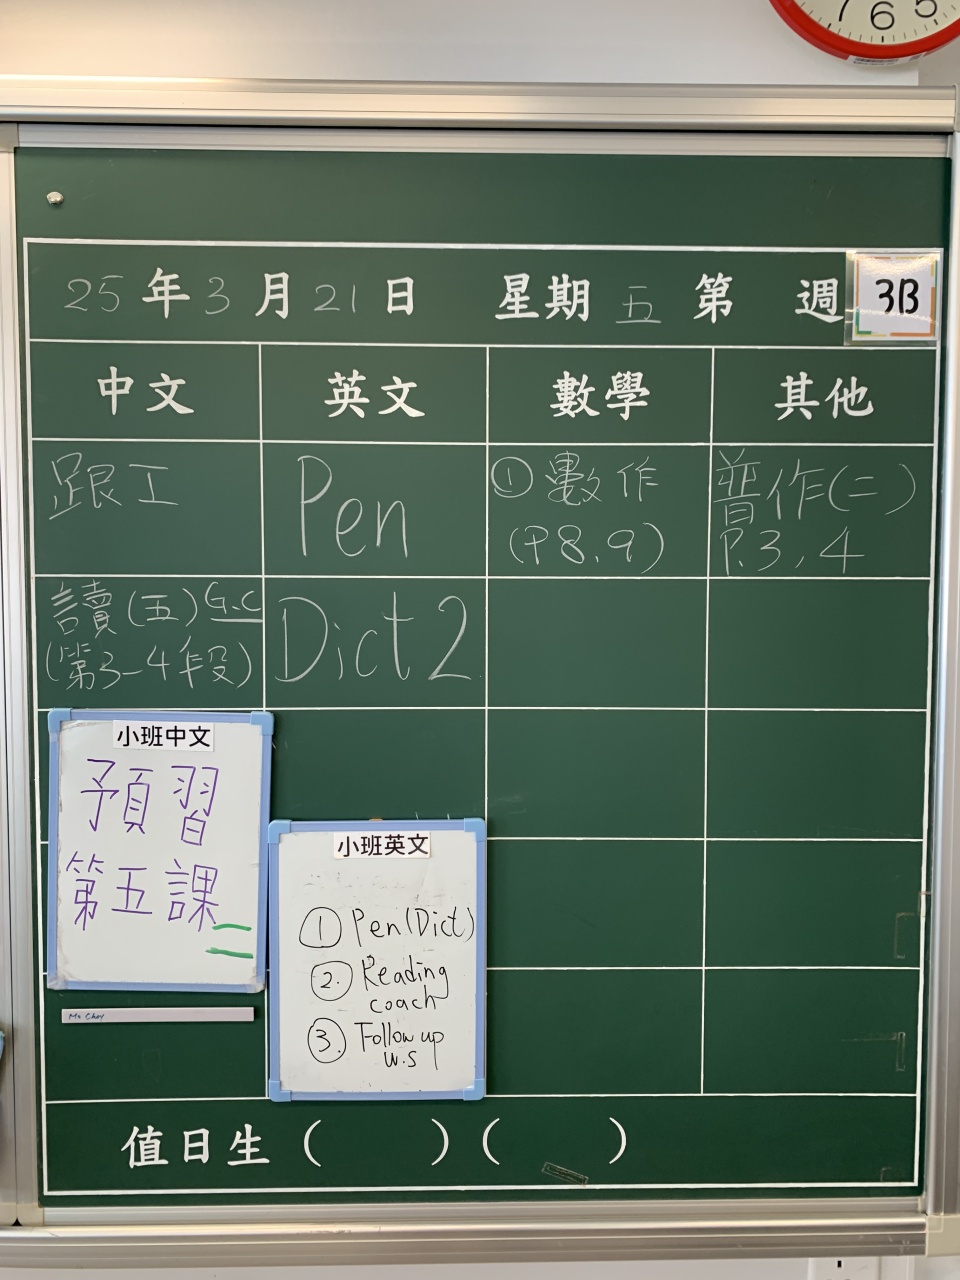 7 6 5
25 年 3 月 21 日 星期 五 第 週 3B
中文 英文 數學 其他
跟工
Pen
① 數作
(P8、9)
普作(二)
P.3, 4
讀(五) G.C
(第3-4段)
Dict 2
小班中文
預習
第五課
小班英文
① Pen(Dict)
②. Reading
coach
③. Follow up
w.s
值日生 ( ) ( )